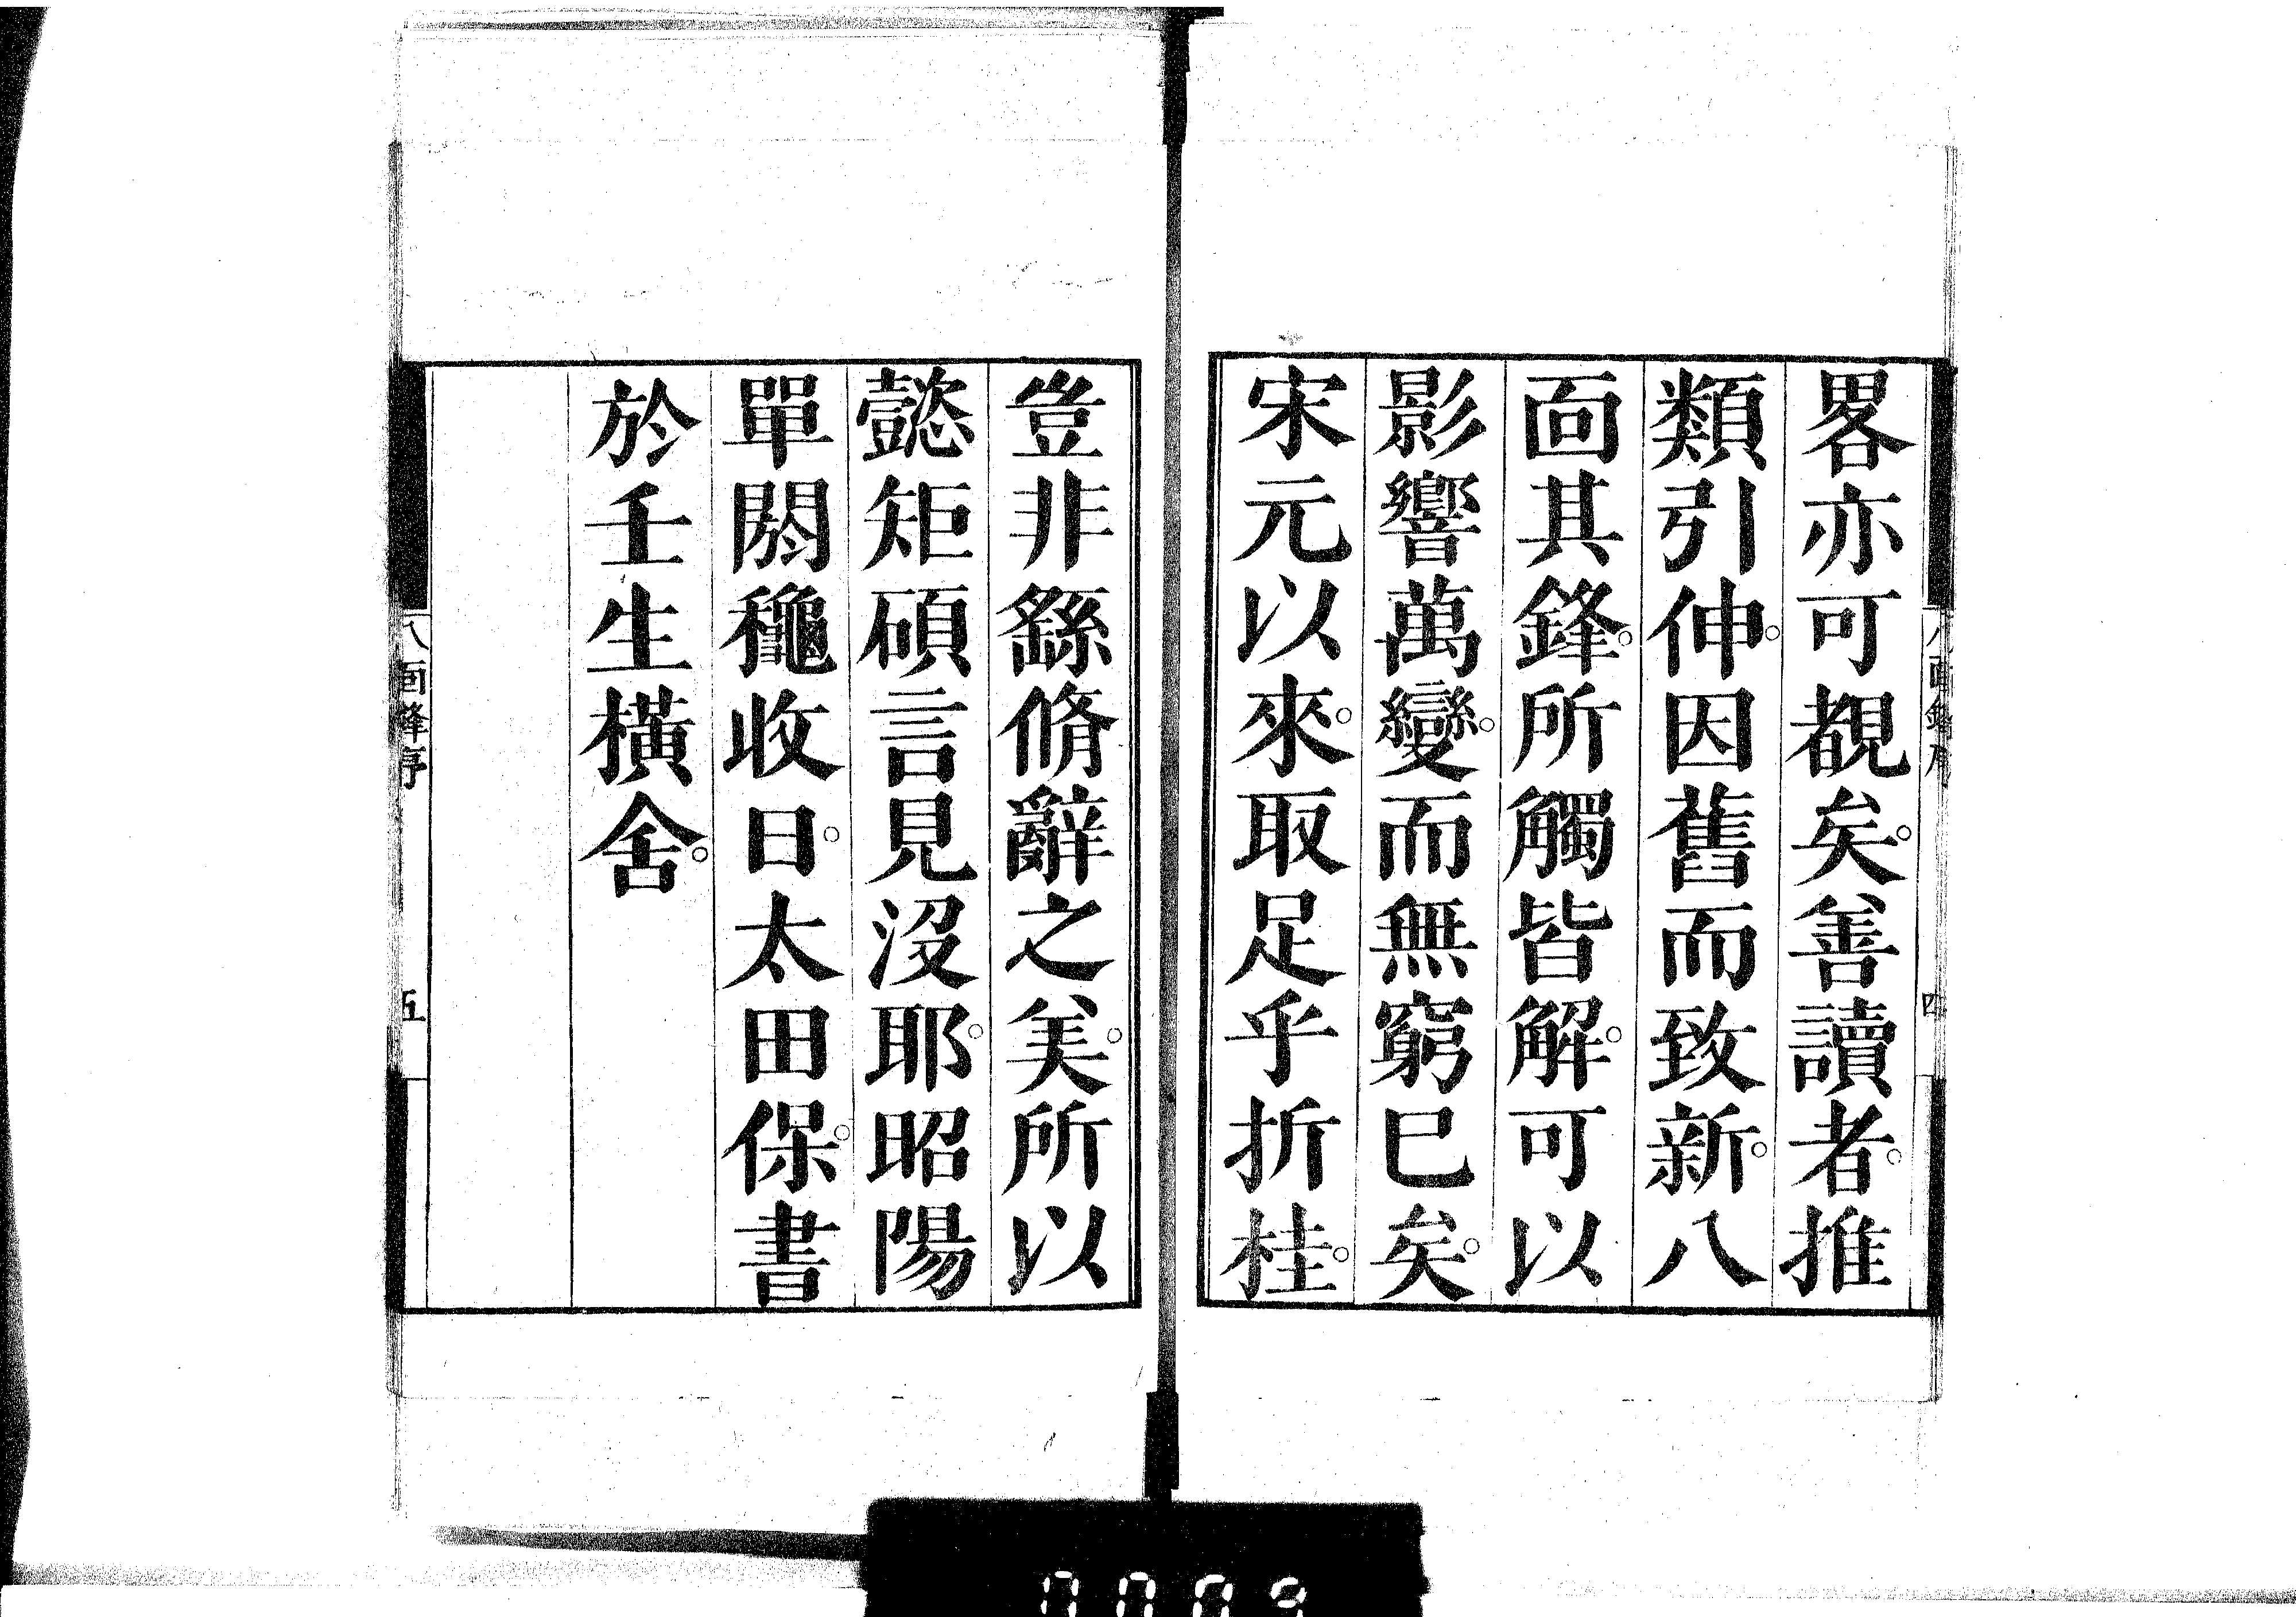 畧亦可覩矣。善讀者。推
類引伸。因舊而致新。八
面其鋒。所觸皆解。可以
影響萬變。而無窮已矣。
宋元以來。取足乎折桂。
豈非繇脩辭之美。所以
懿矩碩言見沒耶。昭陽
單閼龝收日。太田保。書
於壬生橫舍。
八面鋒序
四
八面鋒序
五
0003